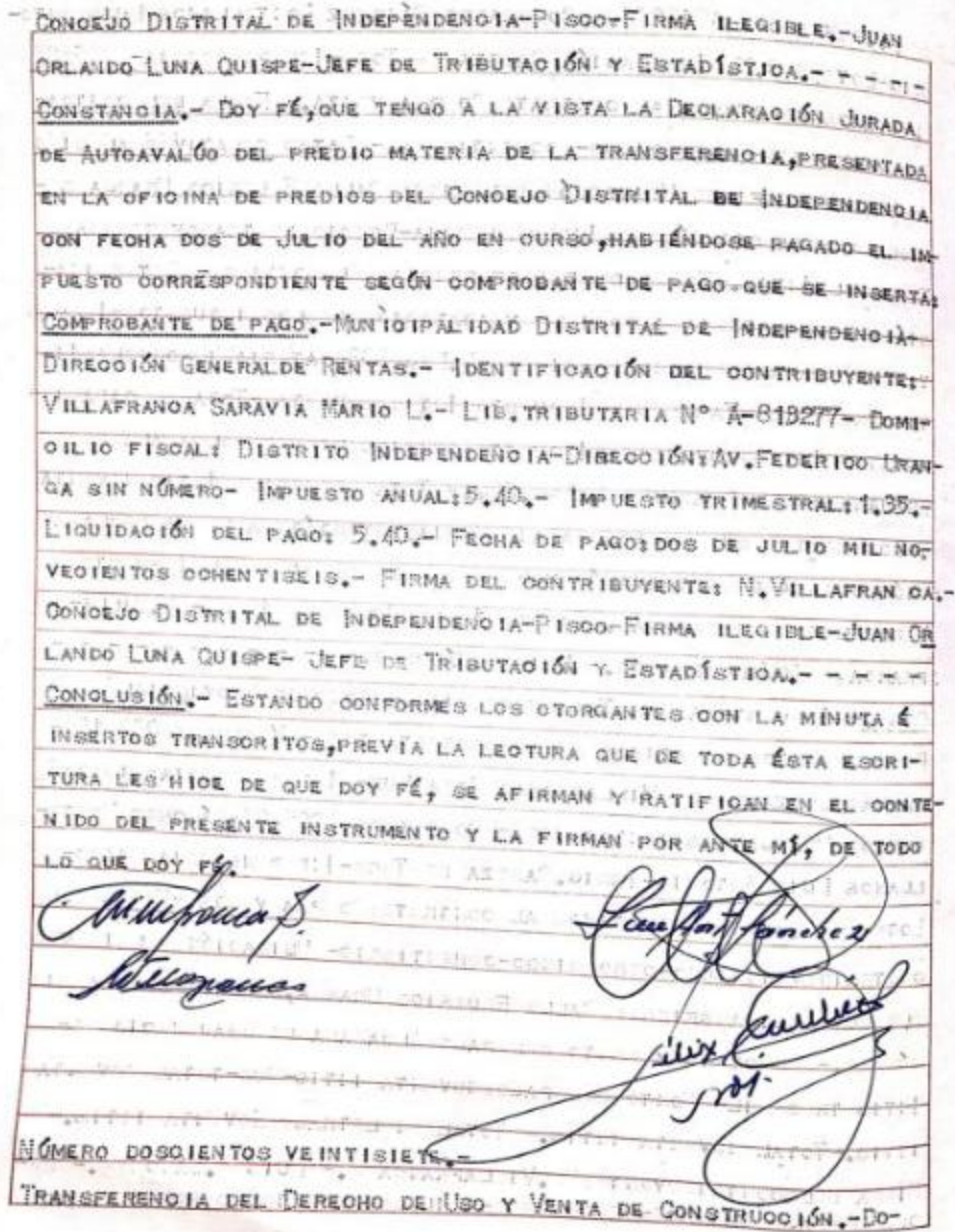 CONCEJO DISTRITAL DE INDEPENDENCIA-PISCO-FIRMA ILEGIBLE.-JUAN
ORLANDO LUNA QUISPE-JEFE DE TRIBUTACIÓN Y ESTADÍSTICA.- - - -
CONSTANCIA.- DOY FÉ,QUE TENGO A LA VISTA LA DECLARACIÓN JURADA
DE AUTOAVALÚO DEL PREDIO MATERIA DE LA TRANSFERENCIA,PRESENTADA
EN LA OFICINA DE PREDIOS DEL CONCEJO DISTRITAL DE INDEPENDENCIA
CON FECHA DOS DE JULIO DEL AÑO EN CURSO,HABIÉNDOSE PAGADO EL IM-
PUESTO CORRESPONDIENTE SEGÚN COMPROBANTE DE PAGO QUE SE INSERTA:
COMPROBANTE DE PAGO.-MUNICIPALIDAD DISTRITAL DE INDEPENDENCIA-
DIRECCIÓN GENERALDE RENTAS.- IDENTIFICACIÓN DEL CONTRIBUYENTE:
VILLAFRANCA SARAVIA MARIO L.- LIB.TRIBUTARIA N° A-813277- DOMI-
CILIO FISCAL: DISTRITO INDEPENDENCIA-DIRECCIÓN:AV.FEDERICO URAN-
GA SIN NÚMERO- IMPUESTO ANUAL:5.40.- IMPUESTO TRIMESTRAL:1.35.-
LIQUIDACIÓN DEL PAGO: 5.40.- FECHA DE PAGO:DOS DE JULIO MIL NO-
VECIENTOS OCHENTISEIS.- FIRMA DEL CONTRIBUYENTE: N.VILLAFRAN CA.-
CONCEJO DISTRITAL DE INDEPENDENCIA-PISCO-FIRMA ILEGIBLE-JUAN OR
LANDO LUNA QUISPE- JEFE DE TRIBUTACIÓN Y ESTADÍSTICA.- - - - -
CONCLUSIÓN.- ESTANDO CONFORMES LOS OTORGANTES CON LA MINUTA É
INSERTOS TRANSCRITOS,PREVIA LA LECTURA QUE DE TODA ÉSTA ESCRI-
TURA LES HICE DE QUE DOY FÉ, SE AFIRMAN Y RATIFICAN EN EL CONTE-
NIDO DEL PRESENTE INSTRUMENTO Y LA FIRMAN POR ANTE MÍ, DE TODO
LO QUE DOY FÉ.
Sánchez
NÚMERO DOSCIENTOS VEINTISIETE.-
TRANSFERENCIA DEL DERECHO DE USO Y VENTA DE CONSTRUCCIÓN.-DO-